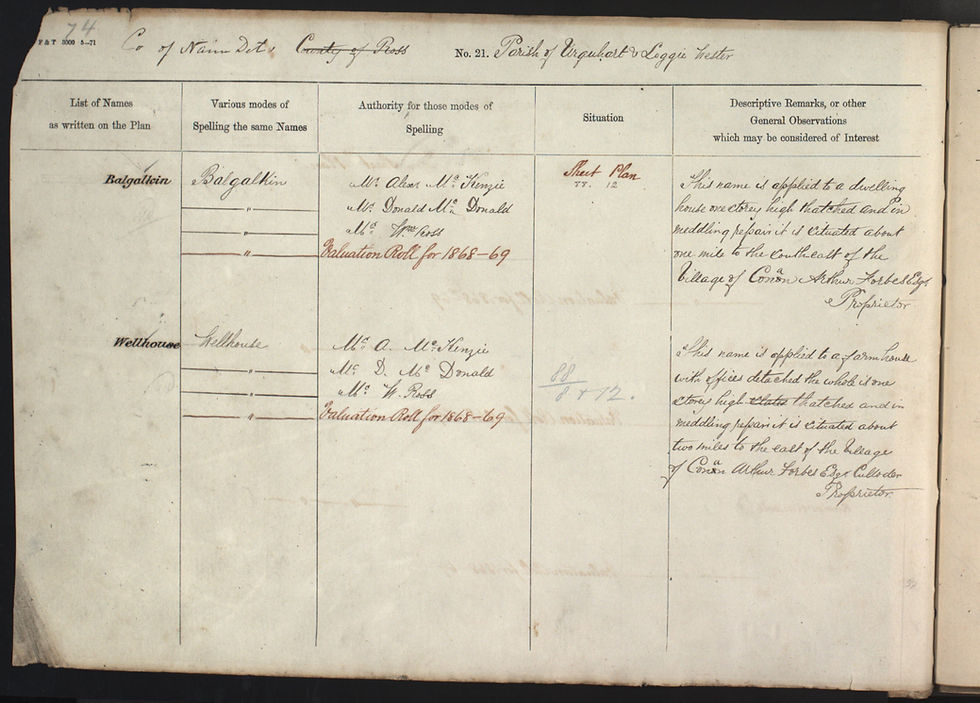 74
F & T 3000 5–71
Co of Nairn Det. County of Ross No. 21. Parish of Urquhart & Loggie Wester
List of Names
as written on the Plan
Various modes of
Spelling the same Names
Authority for those modes of
Spelling
Situation
Descriptive Remarks, or other
General Observations
which may be considered of Interest
Balgalkin
Balgalkin
"
"
"
Mr. Alexr McKenzie
Mr. Donald McDonald
Mr. Wm Ross
Valuation Roll for 1868–69
Sheet Plan
88. 12
This name is applied to a dwelling
house one storey high thatched and in
meddling repair it is situated about
one mile to the southeast of the
Village of Conan Arthur Forbes Esqr
Proprietor
Wellhouse
Wellhouse
"
"
"
Mr. A. McKenzie
Mr. D. McDonald
Mr. W. Ross
Valuation Roll for 1868–69
88
8 + 12.
This name is applied to a farm house
with offices detached the whole is one
storey high slated thatched and in
meddling repair it is situated about
two miles to the east of the Village
of Conan Arthur Forbes Esqr Culloden
Proprietor